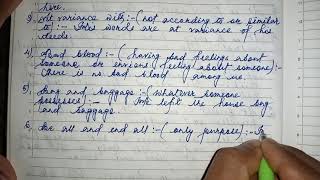 here.
3) At variance with :- ( not according to or similar
to ) :- Joe's words are at variance of his
deeds.
4) Bad blood :- ( having bad feelings about
someone or envious feeling about someone) :-
There is no bad blood among us.
5) Bag and baggage :- ( whatever someone
possesses) :- left the house bag
and baggage.
6) Be all and end all :- ( only purpose) :-